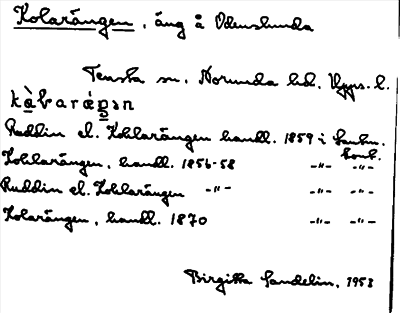 Kolarängen, äng å Odenslunda
Tenska sn. Norunda hd. Upps. l.
kàbaráŋən
Ruddin el. Kohlarängen handl. 1859 i Lantm.
kont.
Kohlarängen, handl. 1856-58 -"- -"-
Ruddin el. Kohlarängen -"- -"- -"-
Kolarängen, handl. 1870 -"- -"-
Birgitta Sandelin, 1953